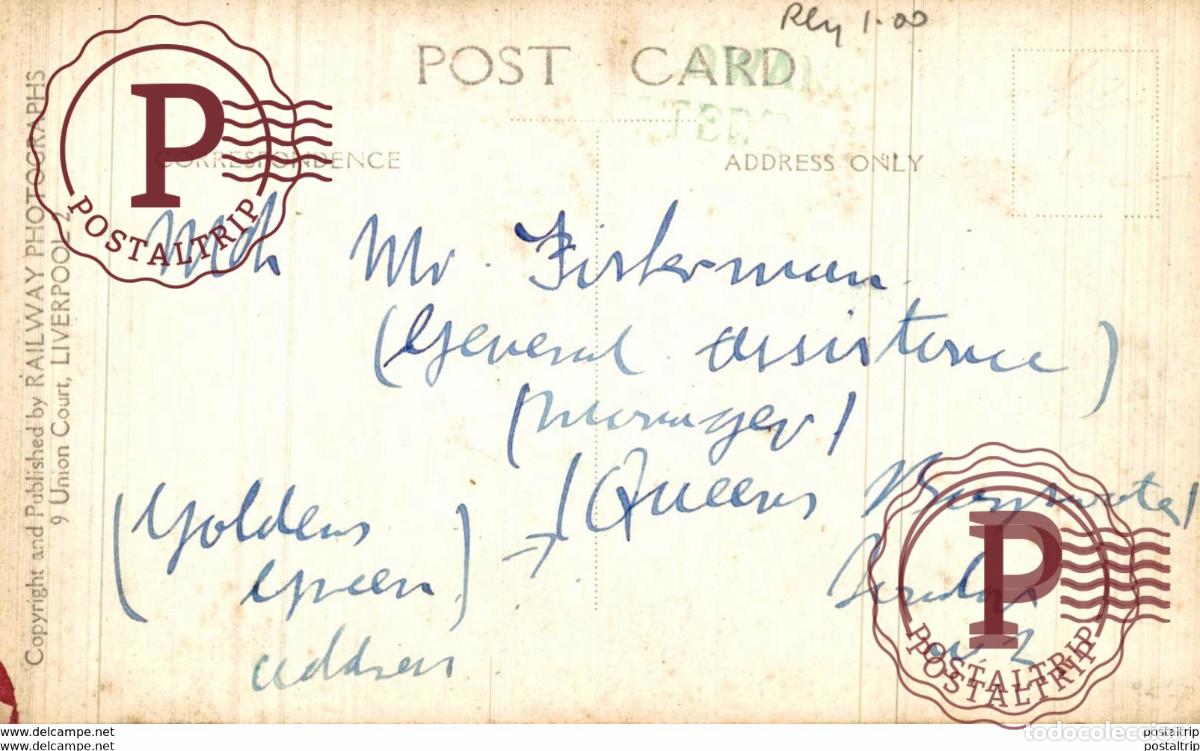 Rly 1.00
POST CARD
CORRESPONDENCE
ADDRESS ONLY
Copyright and Published by RAILWAY PHOTOGRAPHS
9 Union Court, LIVERPOOL 2
Mr. Fisherman
(General assistance)
(Manager)
(Queens
London
(Golders
Green)
address
P
POSTALTRIP
P
POSTALTRIP
POSTALTRIP
todocoleccion
www.delcampe.net
www.delcampe.net
postaltrip
postaltrip